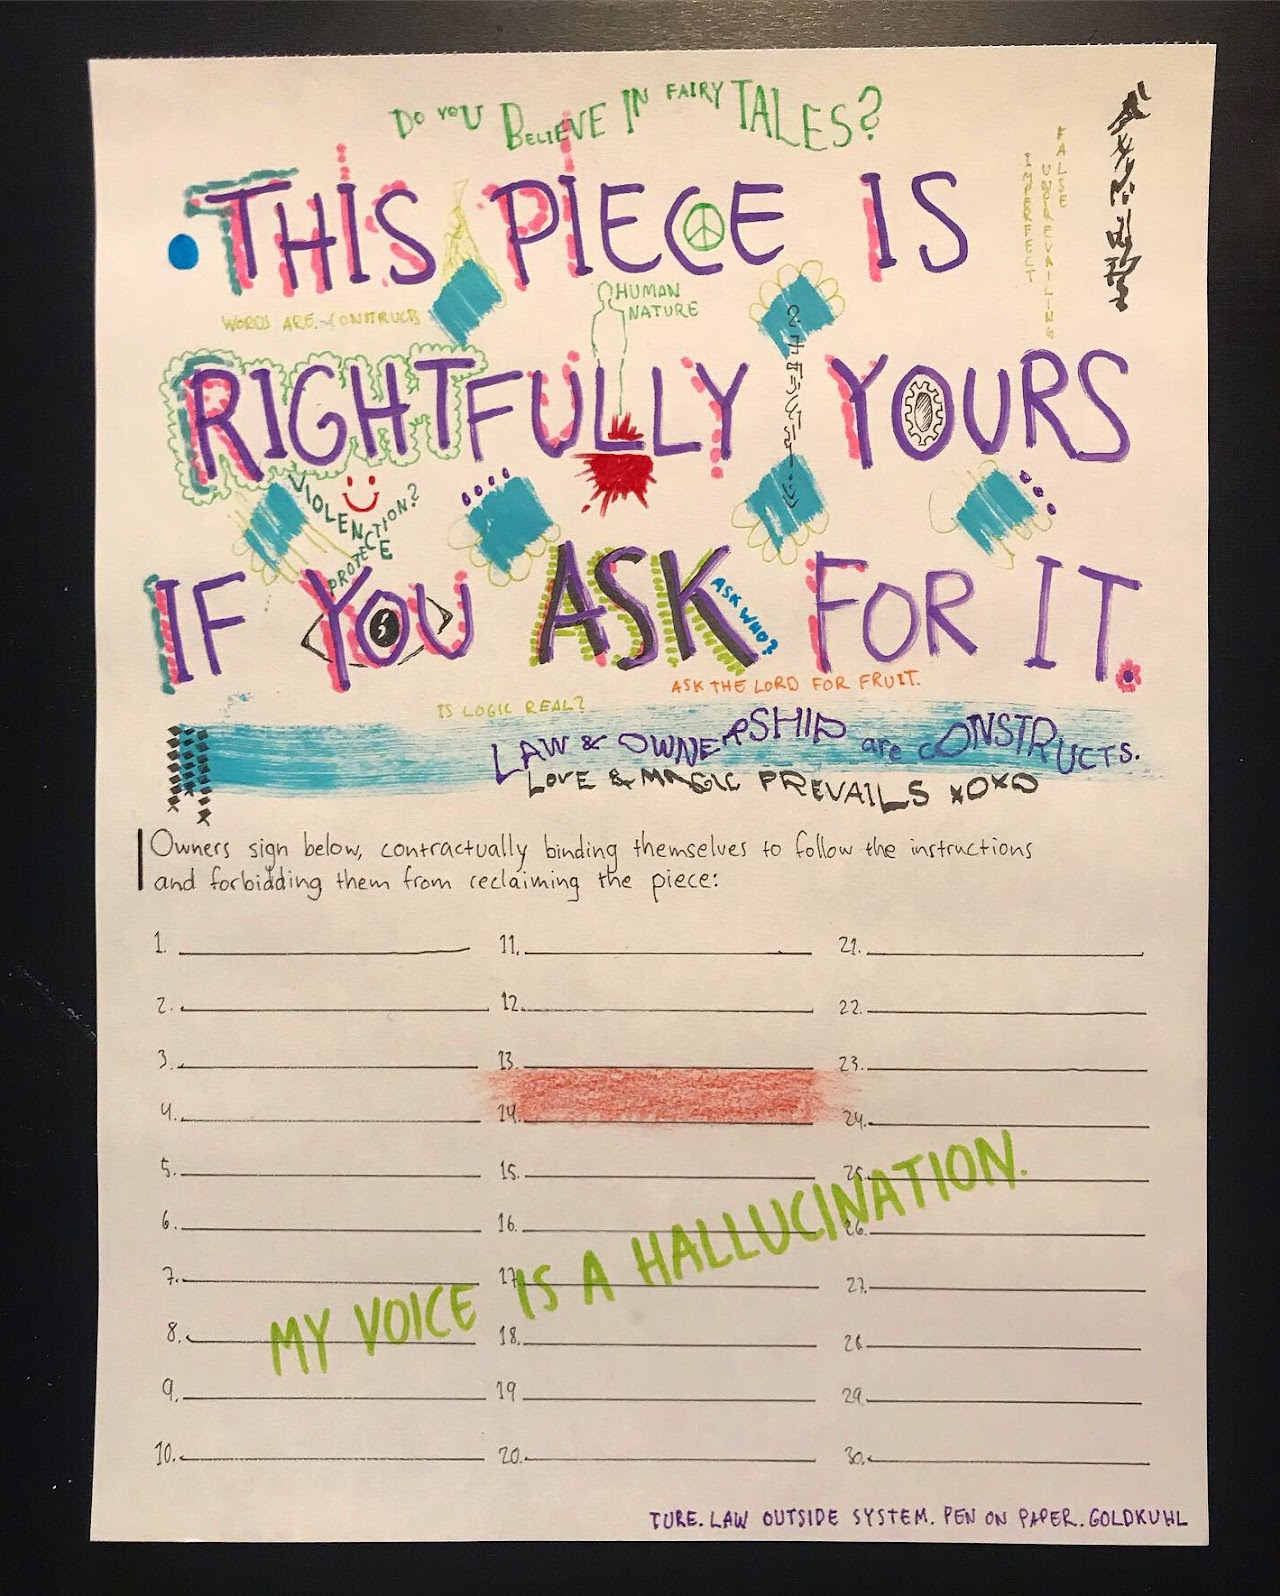 DO YOU BELIEVE IN FAIRY TALES?
THIS PIECE IS
IMPERFECT
FALSE
UNPREVAILING
WORDS ARE CONSTRUCTS
HUMAN
NATURE
RIGHTFULLY YOURS
VIOLENCE
PROTECTION?
IF YOU ASK FOR IT.
ASK WHO?
ASK THE LORD FOR FRUIT.
IS LOGIC REAL?
LAW & OWNERSHIP are CONSTRUCTS.
LOVE & MAGIC PREVAILS XOXO
Owners sign below, contractually binding themselves to follow the instructions
and forbidding them from reclaiming the piece:
1. 11. 21.
2. 12. 22.
3. 13. 23.
4. 14. 24.
5. 15. 25.
6. 16. 26.
7. 17. 27.
8. 18. 28
9. 19 29.
10. 20. 30.
MY VOICE IS A HALLUCINATION.
TURE. LAW OUTSIDE SYSTEM. PEN ON PAPER. GOLDKUHL